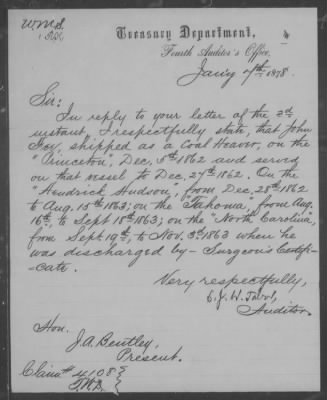 Treasury Department,
Fourth Auditor's Office,
Jan'y 7th 1878.
Sir:
In reply to your letter of the 3d
instant, I respectfully state, that John
shipped as a Coal Heaver, on the
"Princeton", Dec. 5th 1862 and served
on that vessel to Dec. 27th 1862. On the
"Hendrick Hudson", from Dec. 28th 1862
to Aug. 15th 1863; on the "Tahoma", from Aug.
16th, to Sept 18th 1863; on the "North Carolina",
from Sept. 19th, to Nov. 3d 1863 when he
was discharged by - Surgeon's Certifi-
cate.
Very respectfully,
Auditor.
Hon.
J.A. Bentley,
Present.
Claim # 4108